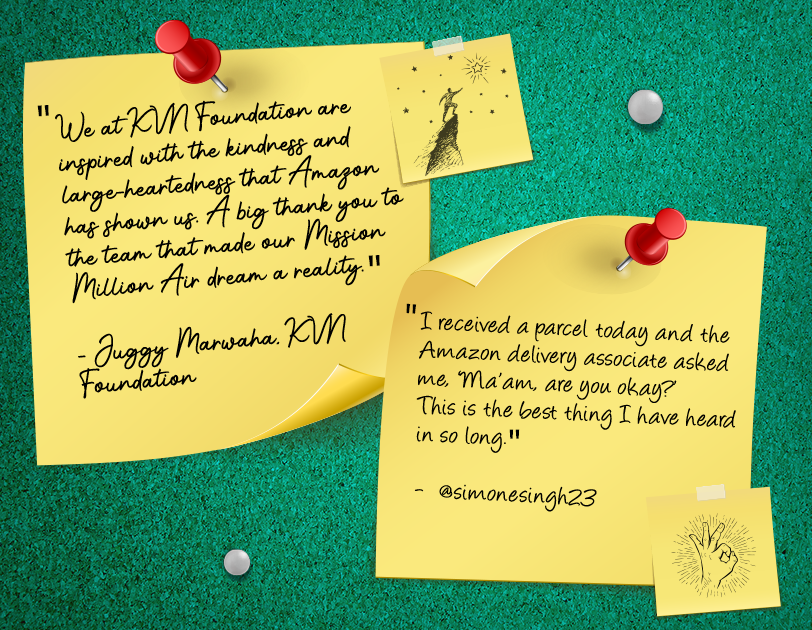 "We at KVM Foundation are
inspired with the kindness and
large-heartedness that Amazon
has shown us. A big thank you to
the team that made our Mission
Million Air dream a reality."
- Juggy Marwaha, KVM
Foundation
"I received a parcel today and the
Amazon delivery associate asked
me, 'Ma'am, are you okay?'
This is the best thing I have heard
in so long."
- @simonesingh23